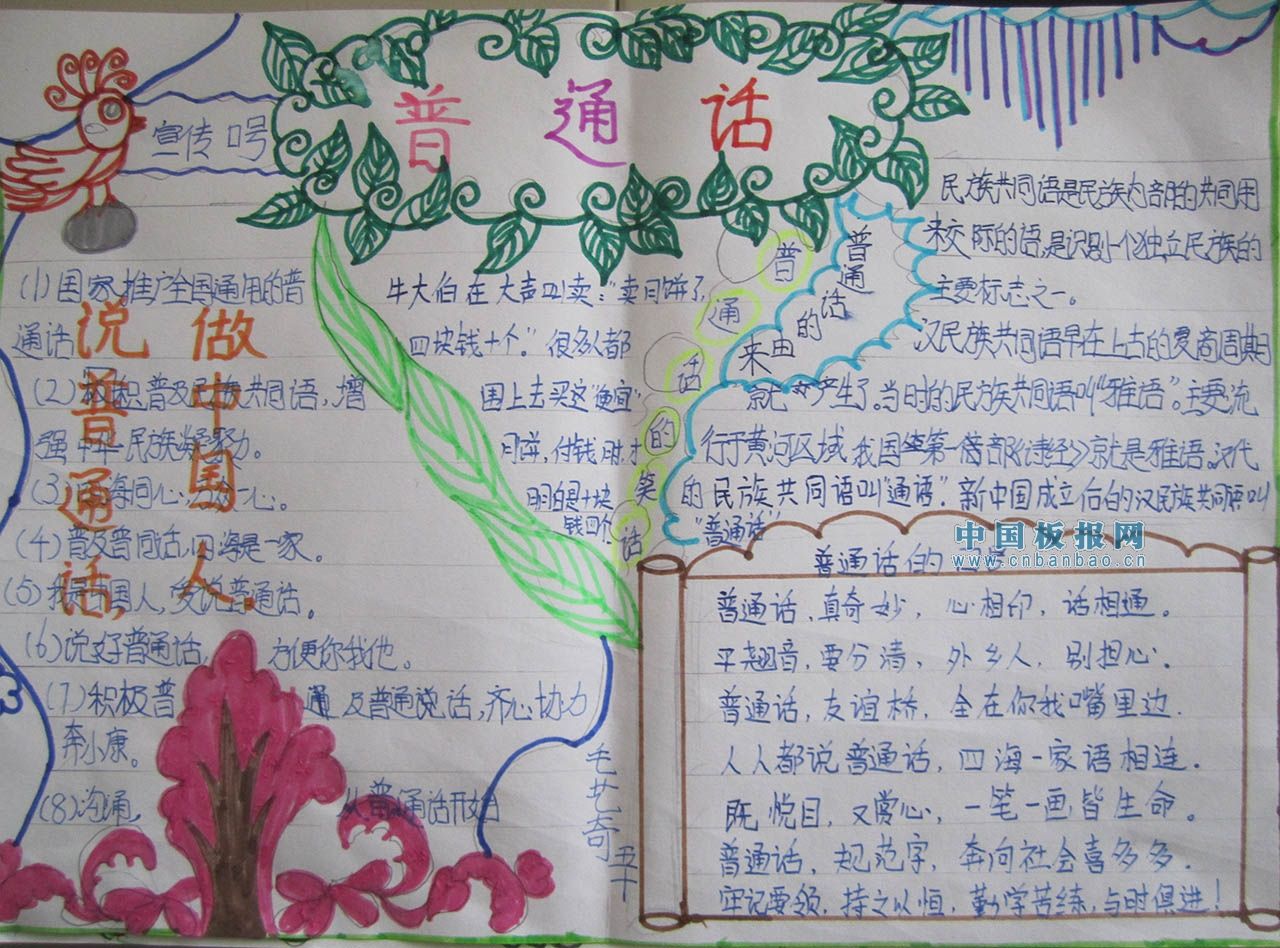 普通话
宣传口号
(1)国家推广全国通用的普
通话
(2)积极普及民族共同语,增
强中华民族凝聚力。
(3)四海同心
(4)普及普同话,四海是一家。
(5)我是中国人,爱说普通话。
(6)说好普通话,方便你我他。
(7)积极普通及普通说话,齐心协力
奔小康。
(8)沟通,从普通话开始
做中国人
说普通话
普通话的笑话
牛大伯在大声叫卖:“卖月饼了
四块钱十个”。很多人都
围上去买这“便宜”
月饼,付钱时,才
明白是十块
钱四个
毛艺奇
普通话
的由来
民族共同语是民族内部的共同用
来交际的语,是识别一个独立民族的
主要标志之一。
汉民族共同语早在上古的夏商周期
就产生了。当时的民族共同语叫“雅语”。主要流
行于黄河区域,我国第一部《诗经》就是雅语。汉代
的民族共同语叫“通语”。新中国成立后的汉民族共同语叫
“普通话”
中国板报网
www.cnbanbao.cn
普通话的
普通话,真奇妙,心相印,话相通。
平翘音,要分清,外乡人,别担心。
普通话,友谊桥,全在你我嘴里边.
人人都说普通话,四海一家语相连.
既悦目,又赏心,一笔一画皆生命。
普通话,规范字,奔向社会喜多多.
牢记要领,持之以恒,勤学苦练,与时俱进!